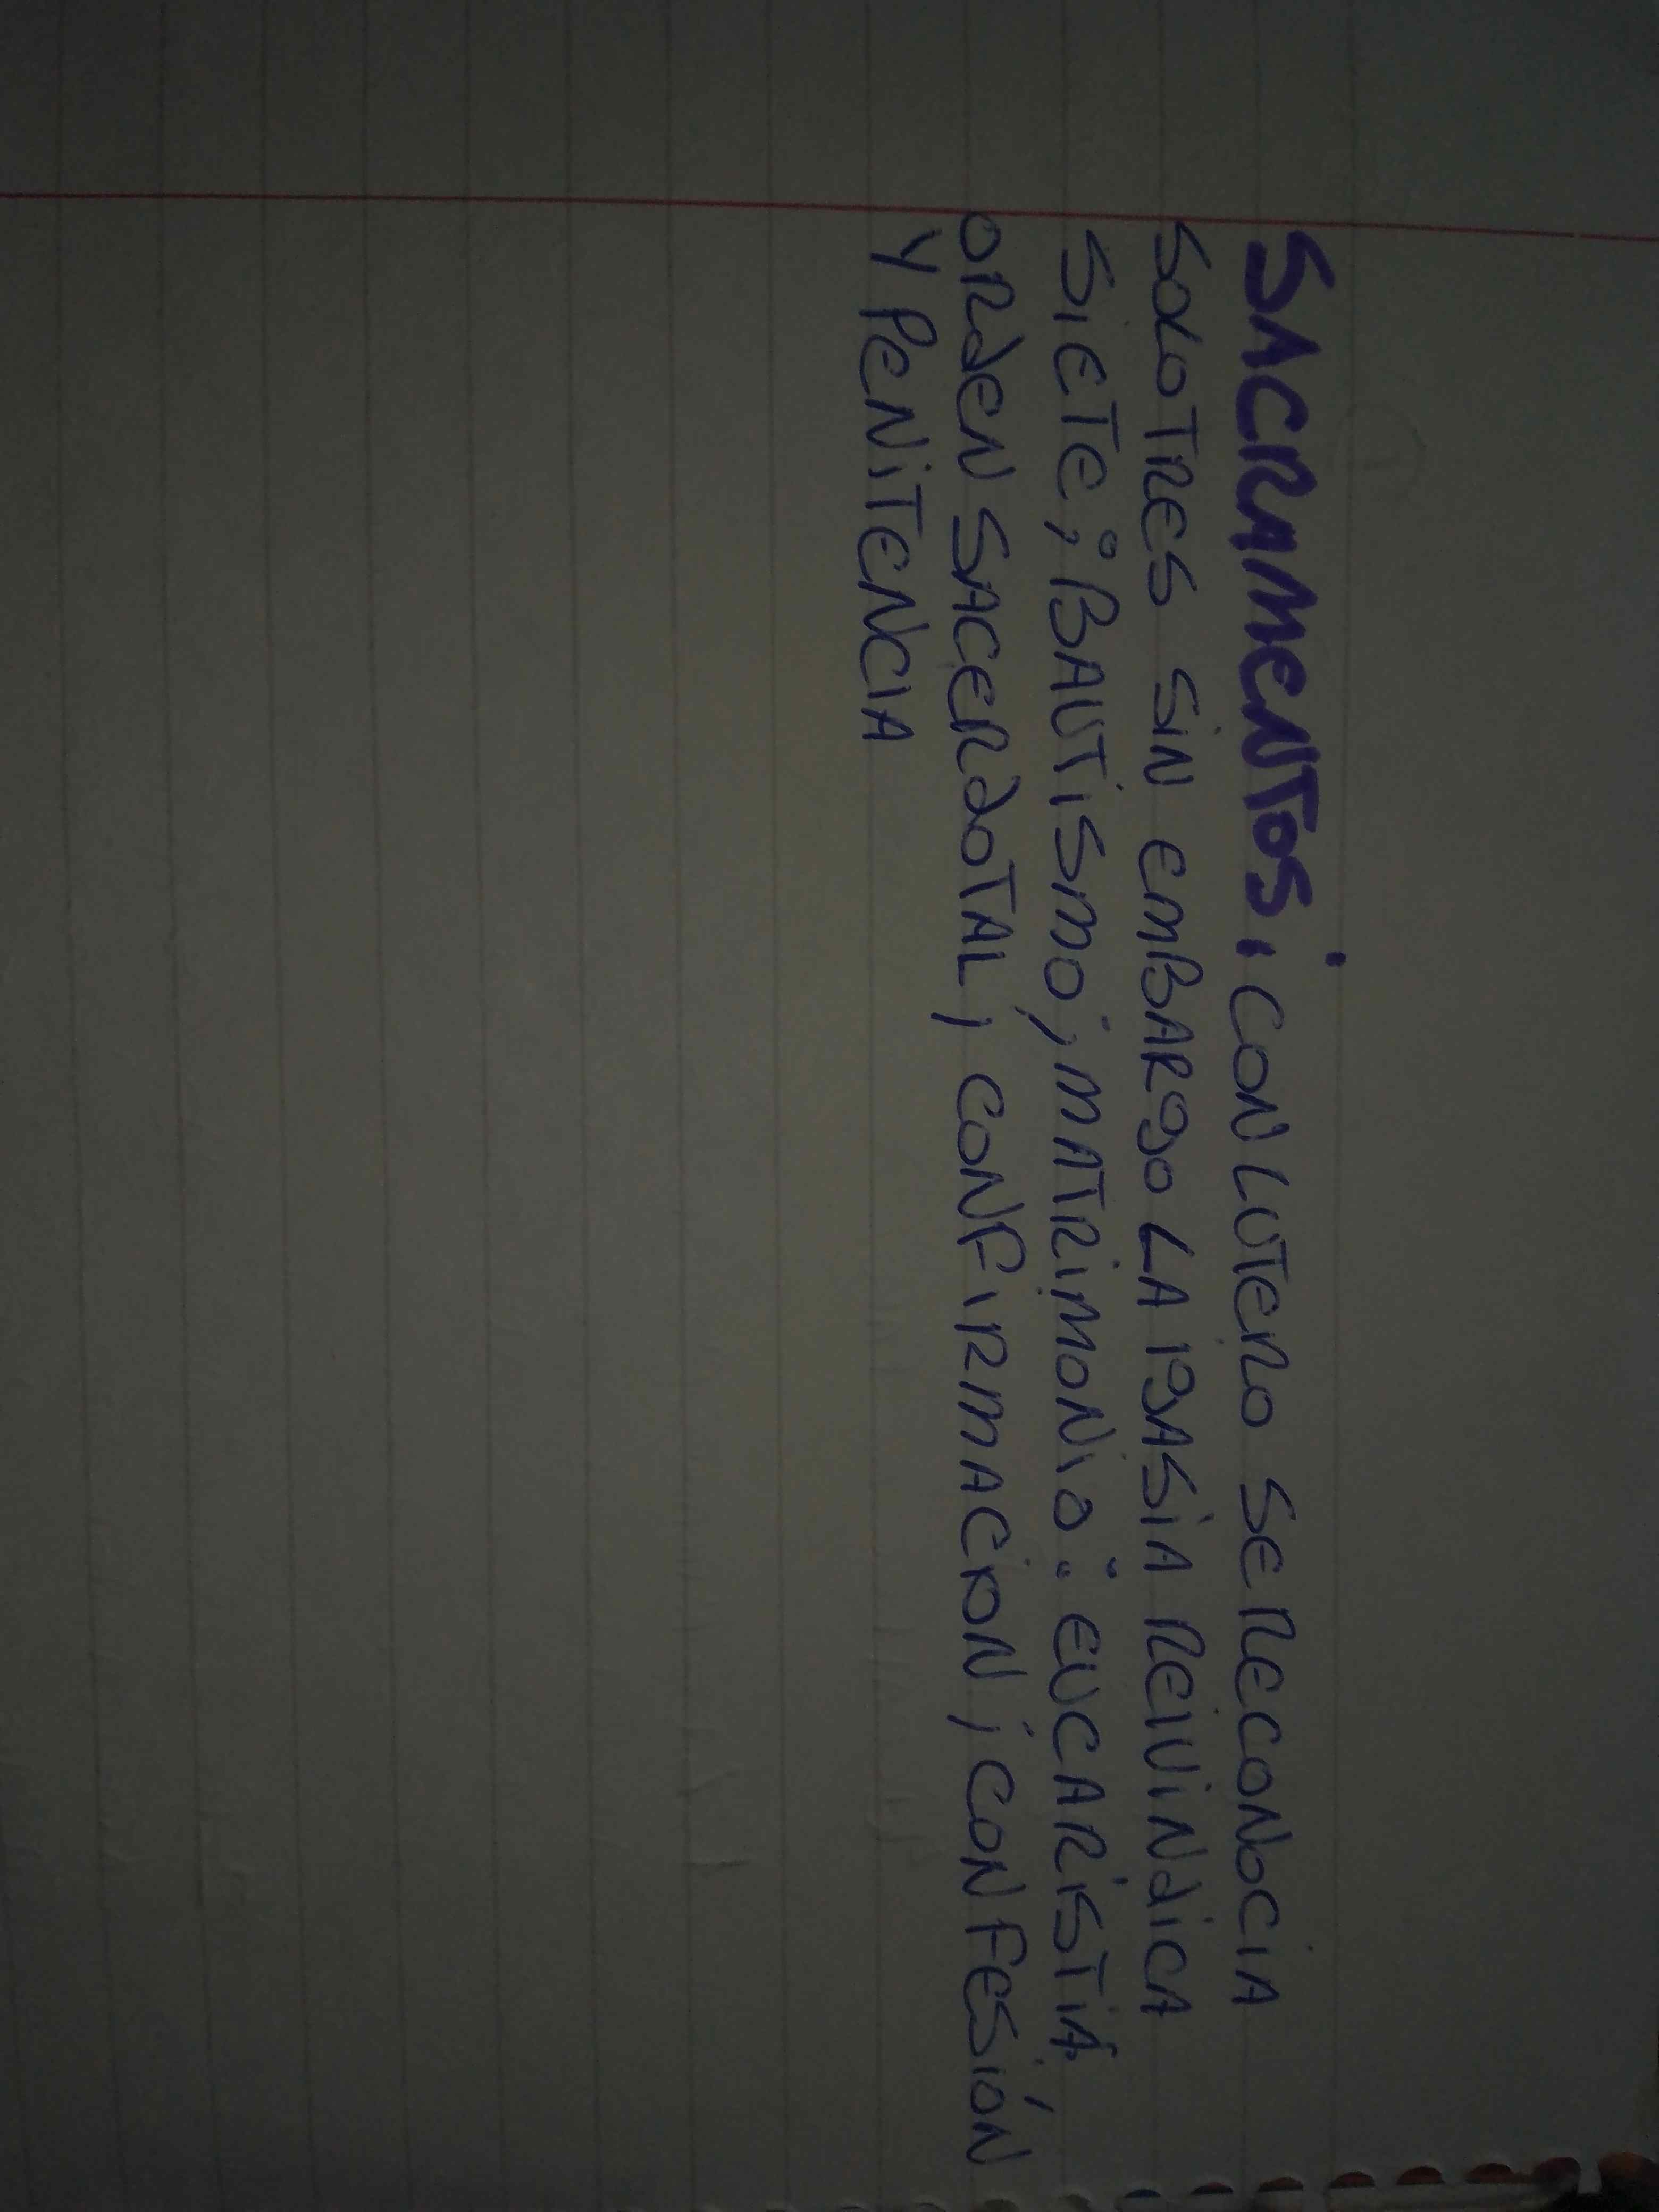 SACRAMENTOS: CON LUTERO SE RECONOCIA
SOLO TRES SIN EMBARGO LA IGASIA REIVINDICA
SIETE; BAUTISMO; MATRIMONIO: EUCARISTIA,
ORDEN SACERDOTAL; CONFIRMACION; CONFESIÓN
Y PENITENCIA